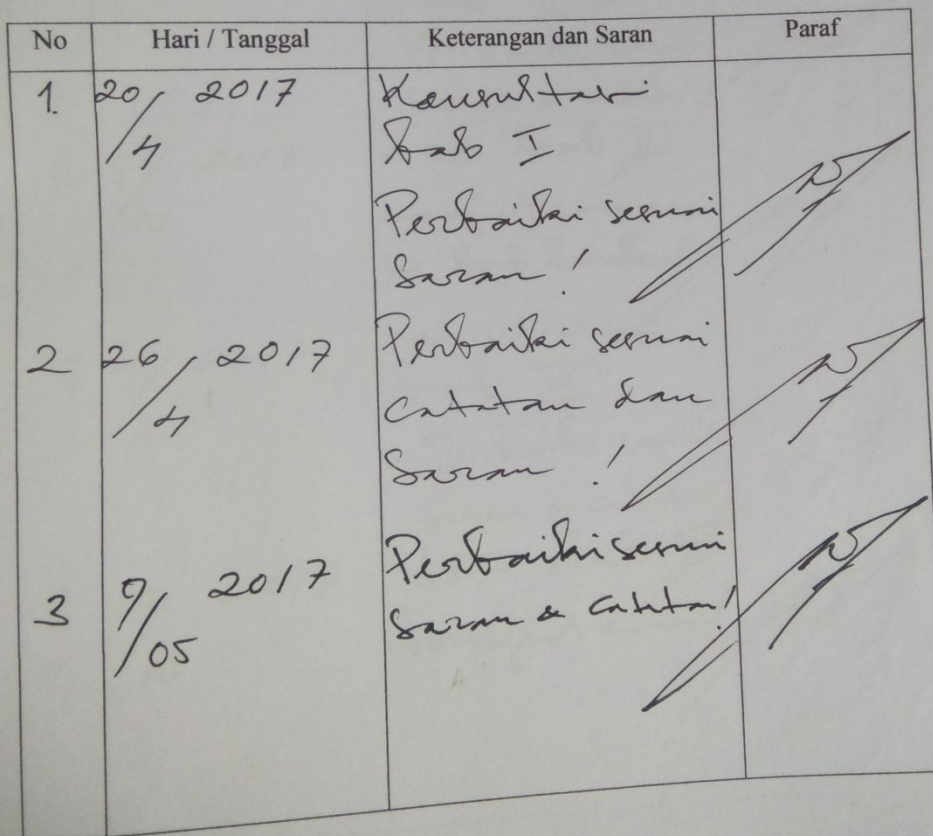 No Hari / Tanggal Keterangan dan Saran Paraf
1. 20/4 2017 Konsultasi
bab I
Perbaiki sesuai
Saran !
2 26/4 2017 Perbaiki sesuai
catatan dan
Saran !
3 9/05 2017 Perbaiki sesuai
saran & catatan!